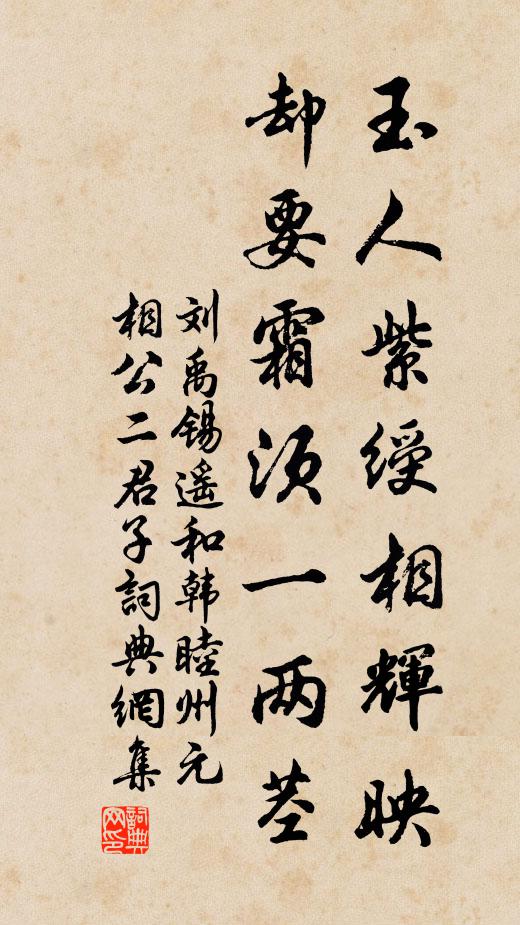 玉人紫绶相輝映
却要霜须一两茎
刘禹锡遥和韩睦州元
相公二君子詞典網集
詞典网印